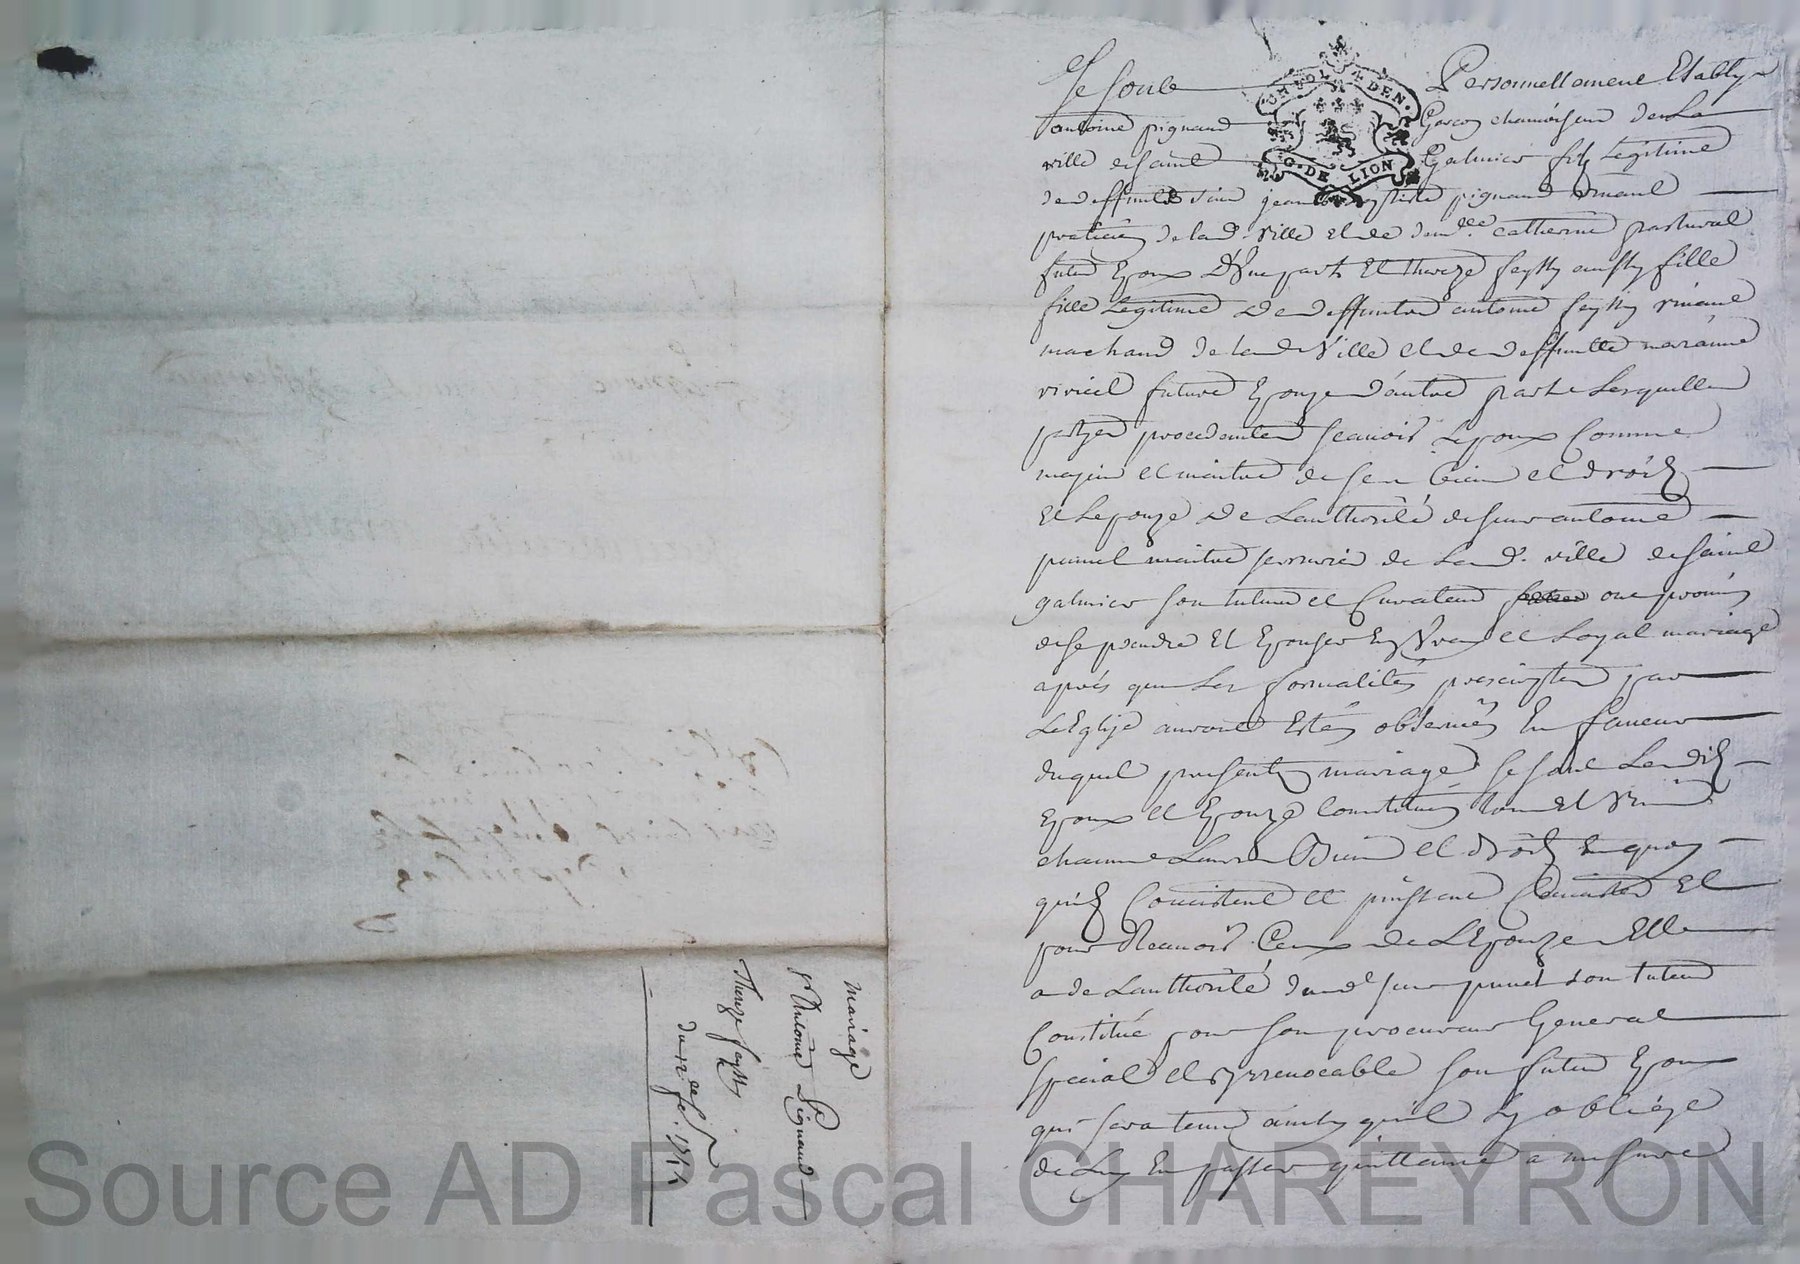 Se sont Personnellement Etablys
antoine pignaud Garçon chamoiseur de La
ville de saint Galmier fils Légitime
de deffunt sieur jean baptiste pignaud vivant
praticien de lad. Ville et de dem.lle catherine pastural
futur Epoux D'Vne part, Et thereze faytty aussy fille
fille Légitime de deffuntre antoine faytty vivant
marchand de lad. Ville et de deffuntte marianne
viricel future Epouze d'autre part Lesquelles
partyes procedantes scauoir Lepoux Comme
majeur et maitre de ses biens et droits
Et Lepouze de Lauthorité de sieur antoine
punel maitre serrurier de Lad. ville de saint
galmier son tuteur et Curateur ont promis
de se prendre Et Epouser En Vray et Loyal mariage
après que Les formalités prescriptes par
LEglise auront Estés observés En faveur
duquel present mariage se sont Lesdits
Epoux et Epouze Constitués tous et Vn
chacuns Leurs Biens et droits En quoy
qu'ils Consistent et puissent Consister Et
pour Recevoir Ceux de LEpouze Elle
a de Lauthorité dud. sieur punel son tuteur
Constitué pour son procureur General
special et Irrevocable son futur Epoux
qui sera tenu ainsy qu'il sy obliege
de Luy En passer quittance a mesure
mariage
sr Antoine Pignaud
Thereze faytty
du 12.
Source AD Pascal CHAREYRON
CH POL DEN.
G. DE LION